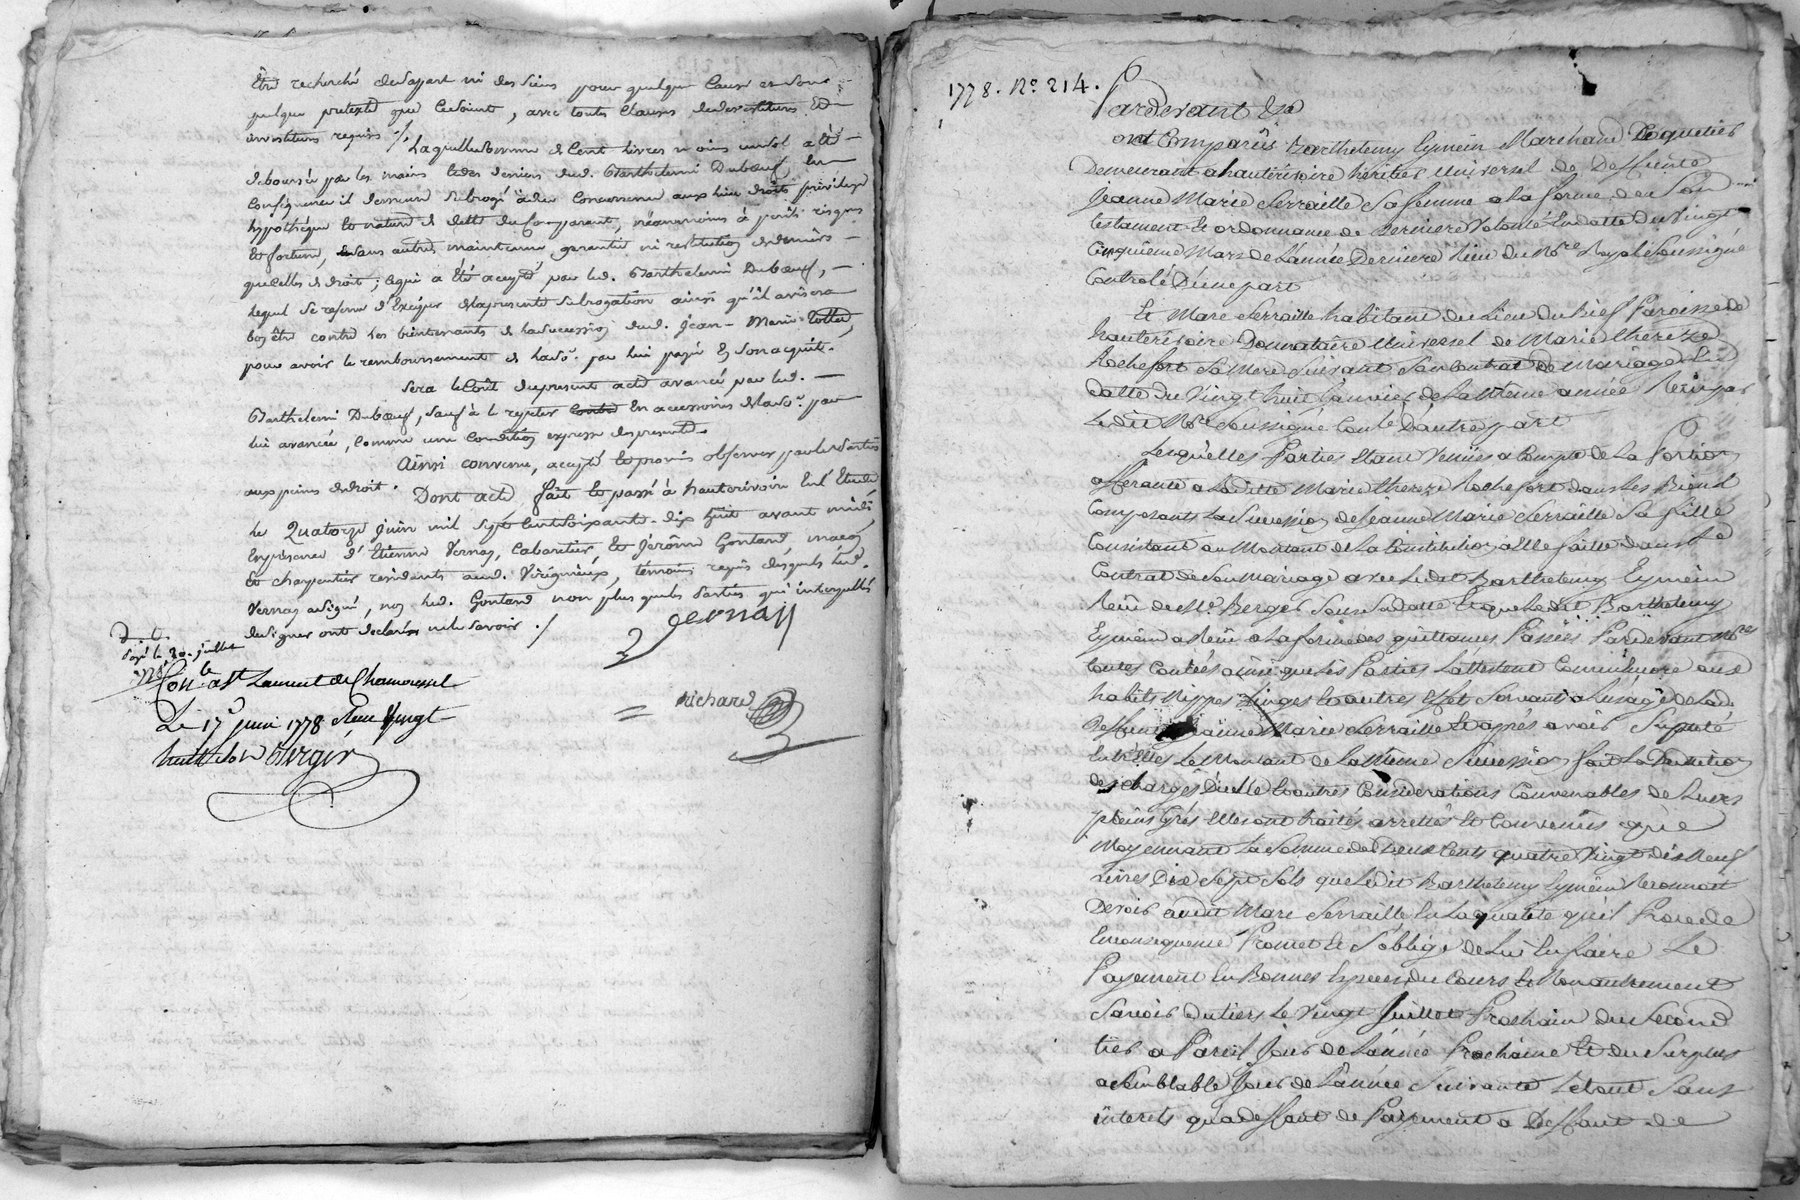 Être recherché de sa part ni des siens pour quelque Cause et sous
quelque pretexte que ce soient, avec toutes Clauses de devestiture Et
investiture requise ./.
Laquelle somme de Cent livres moins un sol a été
déboursée par les mains & des deniers dud. Barthelemi Duboeuf, En
Conséquence il demeure Subrogé à due Concurrence aux lieu droits privilege
hypothéque et nature de dette du Comparant, néanmoins à perils risques
Et fortune, & sans autre maintenue garantie ni restitution de deniers
que Celles de droit; Ce qui a été acepté par led. Barthelemi Duboeuf,
lequel se reserve d'Exciper de la presente Subrogation ainsi qu'il avisera
bon être contre les bientenants de la succession dud. jean-Marie
pour avoir le remboursement de lad. so. par lui payée En son acquit.
Sera le Coût du present acte avancé par led.
Barthelemi Duboeuf, sauf à le repeter En accessoires de lad. so. par
lui avancée, Comme une Condition expresse des presentes.
Ainsi convenu, accepté Et promis observer par les Parties
aux peines de droit. Dont acte fait Et passé à hauterivoire En l'Etude
le Quatorze juin mil sept Cent soixante-dix huit avant midi
En presence d'Etienne Vernay, Cabaretier, Et Jérôme Gontard maçon
Et charpentier residents aud. Virigneux, témoins requis desquels led.
Vernay a signé, non led. Gontard non plus que les Parties qui interpellés
de signer ont declaré ne le savoir ./.
Vernay
payé le 20. juillet
richard
Con.le a St Laurent de Chamousset
Le 17e juin 1778 Reçu Vingt
huit sols Berger
1778. No. 214.
Pardevant &a
ont Comparûs Barthelemy Eymein Marchand Coquetier
Demeurant a hauterivoire héritier Universel de Deffunte
Jeanne Marie Serraille Sa femme a la forme de son
testament Et ordonnance de Derniere Volonté En datte du Vingt
Cinquieme Mars de L'année Derniere Reçu du Nre Royal Soussigné
Controlé D'une part
Et Marc Serraille habitant du Lieu du Rief Paroisse de
hauterivoire Donnataire Universel de Marie Thereze
Rochefort Sa Mere Suivant Son Contrat de Mariage En
datte du Vingt huit Janvier de La Même année Reçu par
Le dit Nre Soussigné Conlé D'autre part
Lesquelles Parties Etant Venües a Compte de La Portion
afferante a Laditte Marie thereze Rochefort dans Les Biens
Composants La Succession de Jeanne Marie Serraille Sa fille
Consistant au Montant de La Constitution a Elle faitte dans Le
Contrat de Son Mariage avec Ledit Barthelemy Eymein
Reçû de Me Berger Sous Sa datte Et que Le dit Barthelemy
Eymein a Reçû a La forme des quittances Passées Pardevant Nres
toutes Contées ainsi que Les Parties L'attestent Comm'encore aux
habits Nippes Linges Et autres Effet Servants a L'usage de Lad.
Deffunte Jeanne Marie Serraille Et apres avoir Supputé
Entr'elles Le Montant de La Même Succession fait La Deduction
des charges D'icelle Et autres Considerations Convenables de Leurs
pleins Grés Elles ont traités arrettés Et Convenües que
Moyennant La Somme de Deux Cents quatre Vingt dix Neuf
Livres Dix Sept Sols que Ledit Barthelemy Eymein Reconnoit
Devoir audit Marc Serraille En La qualité qu'il Procede
En Consequence Promet Et S'oblige de Lui En faire Le
Payement En Bonnes Especes du Cours Et Non autrement
Savoir du tiers Le Vingt Juillet Prochain du Second
tier a Pareil Jour de L'année Prochaine Et du Surplus
a Semblable Jour de L'année Suivante Le tout Sans
interets qu'a deffaut de Payement a Deffaut de